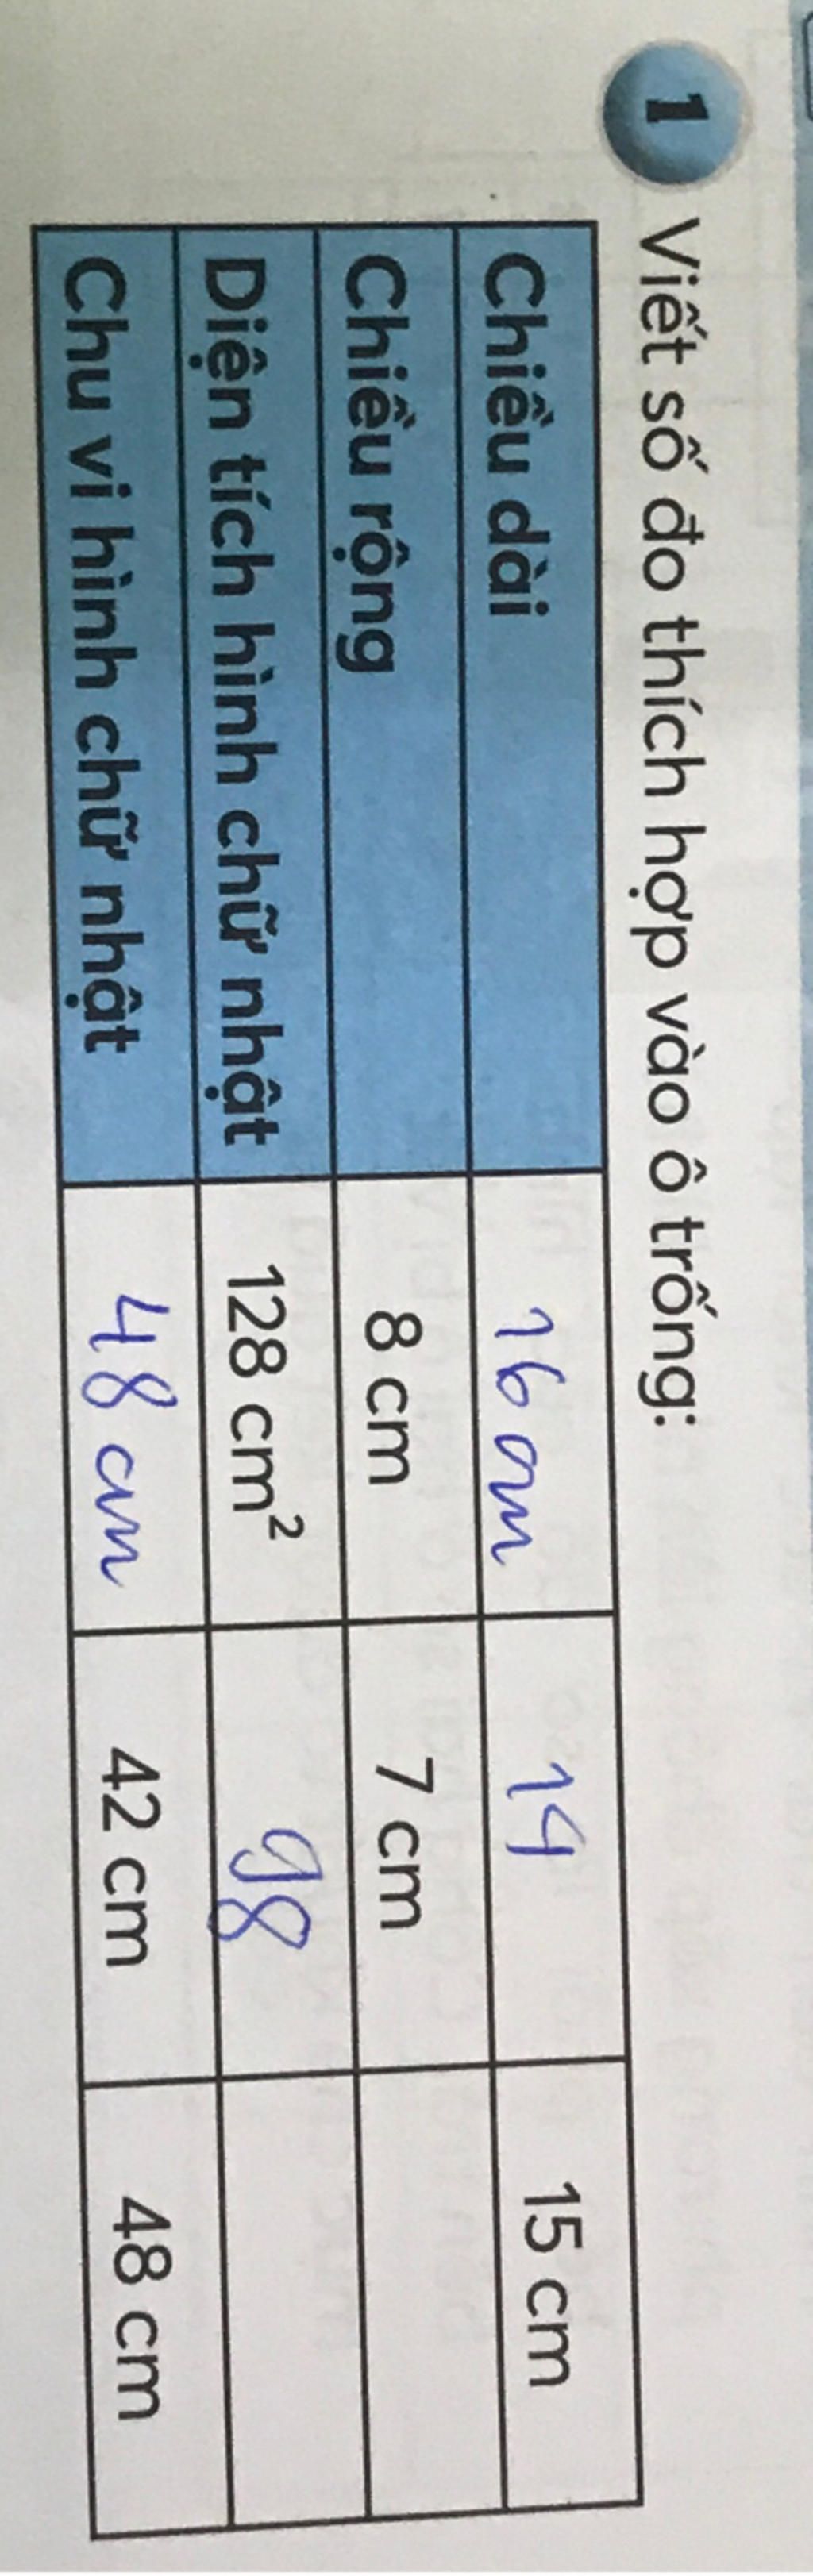 1 Viết số đo thích hợp vào ô trống:
Chiều dài 16 cm 14 15 cm
Chiều rộng 8 cm 7 cm
Diện tích hình chữ nhật 128 cm² 98
Chu vi hình chữ nhật 48 cm 42 cm 48 cm